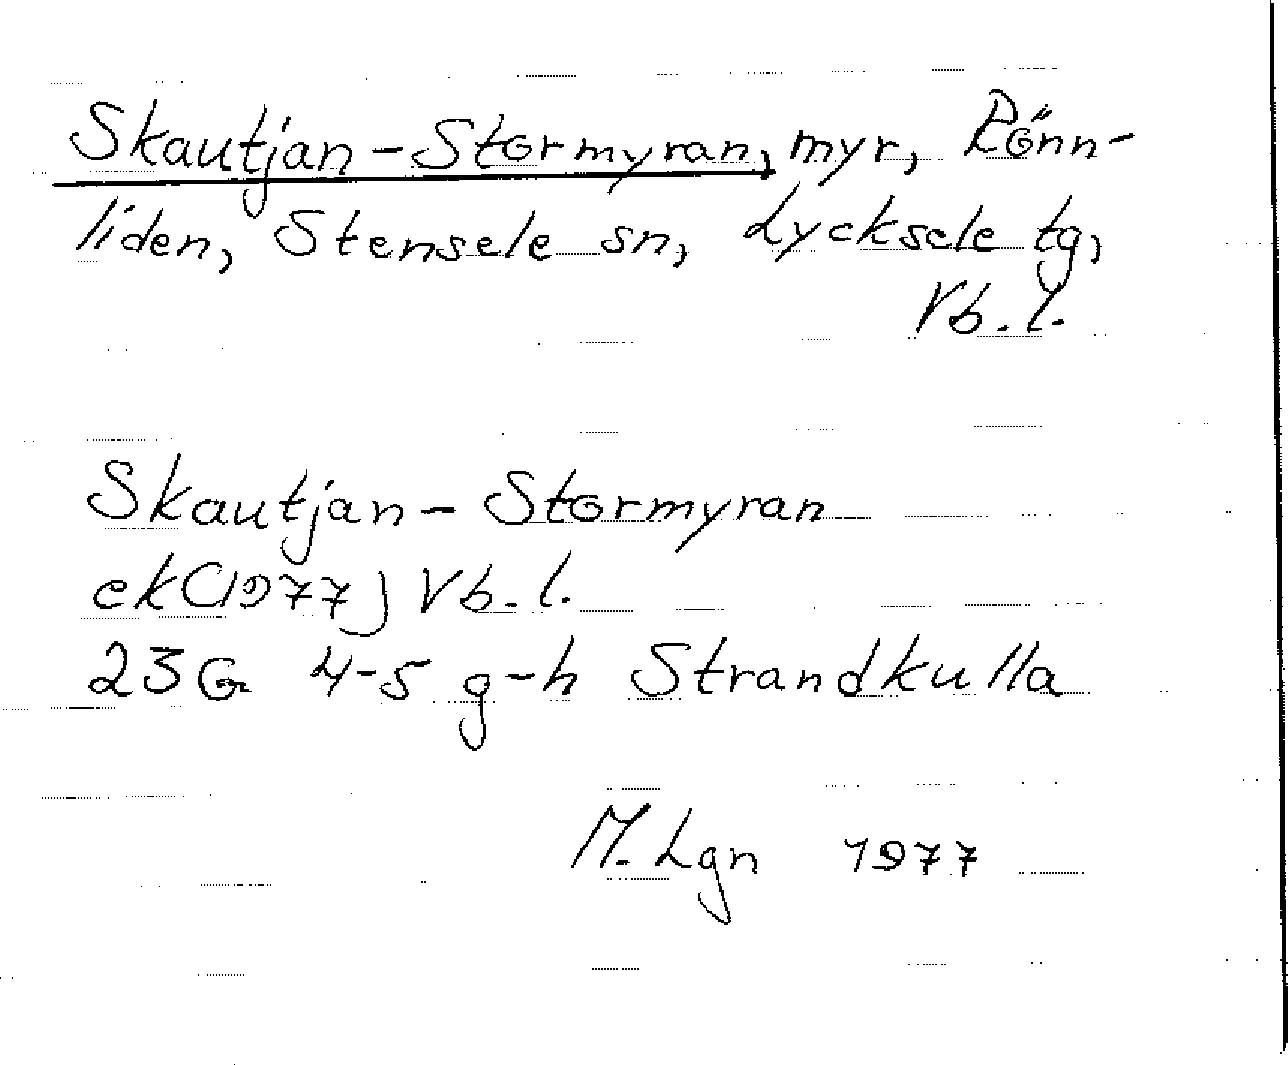 Skautjan-Stormyran, myr, Rönn-
liden, Stensele sn, Lycksele tg,
Vb. l.
Skautjan-Stormyran
ek (1977) Vb. l.
23G 4-5 g-h Strandkulla
M. Lgn 1977